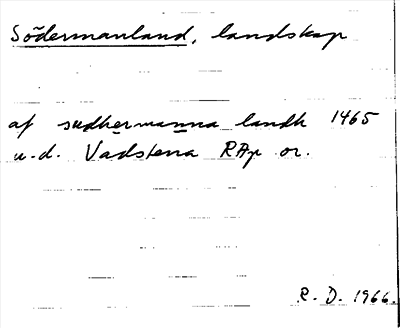 Södermanland, landskap
af sudhermanna landh 1465
u.d. Vadstena RAp or.
R. D. 1966.